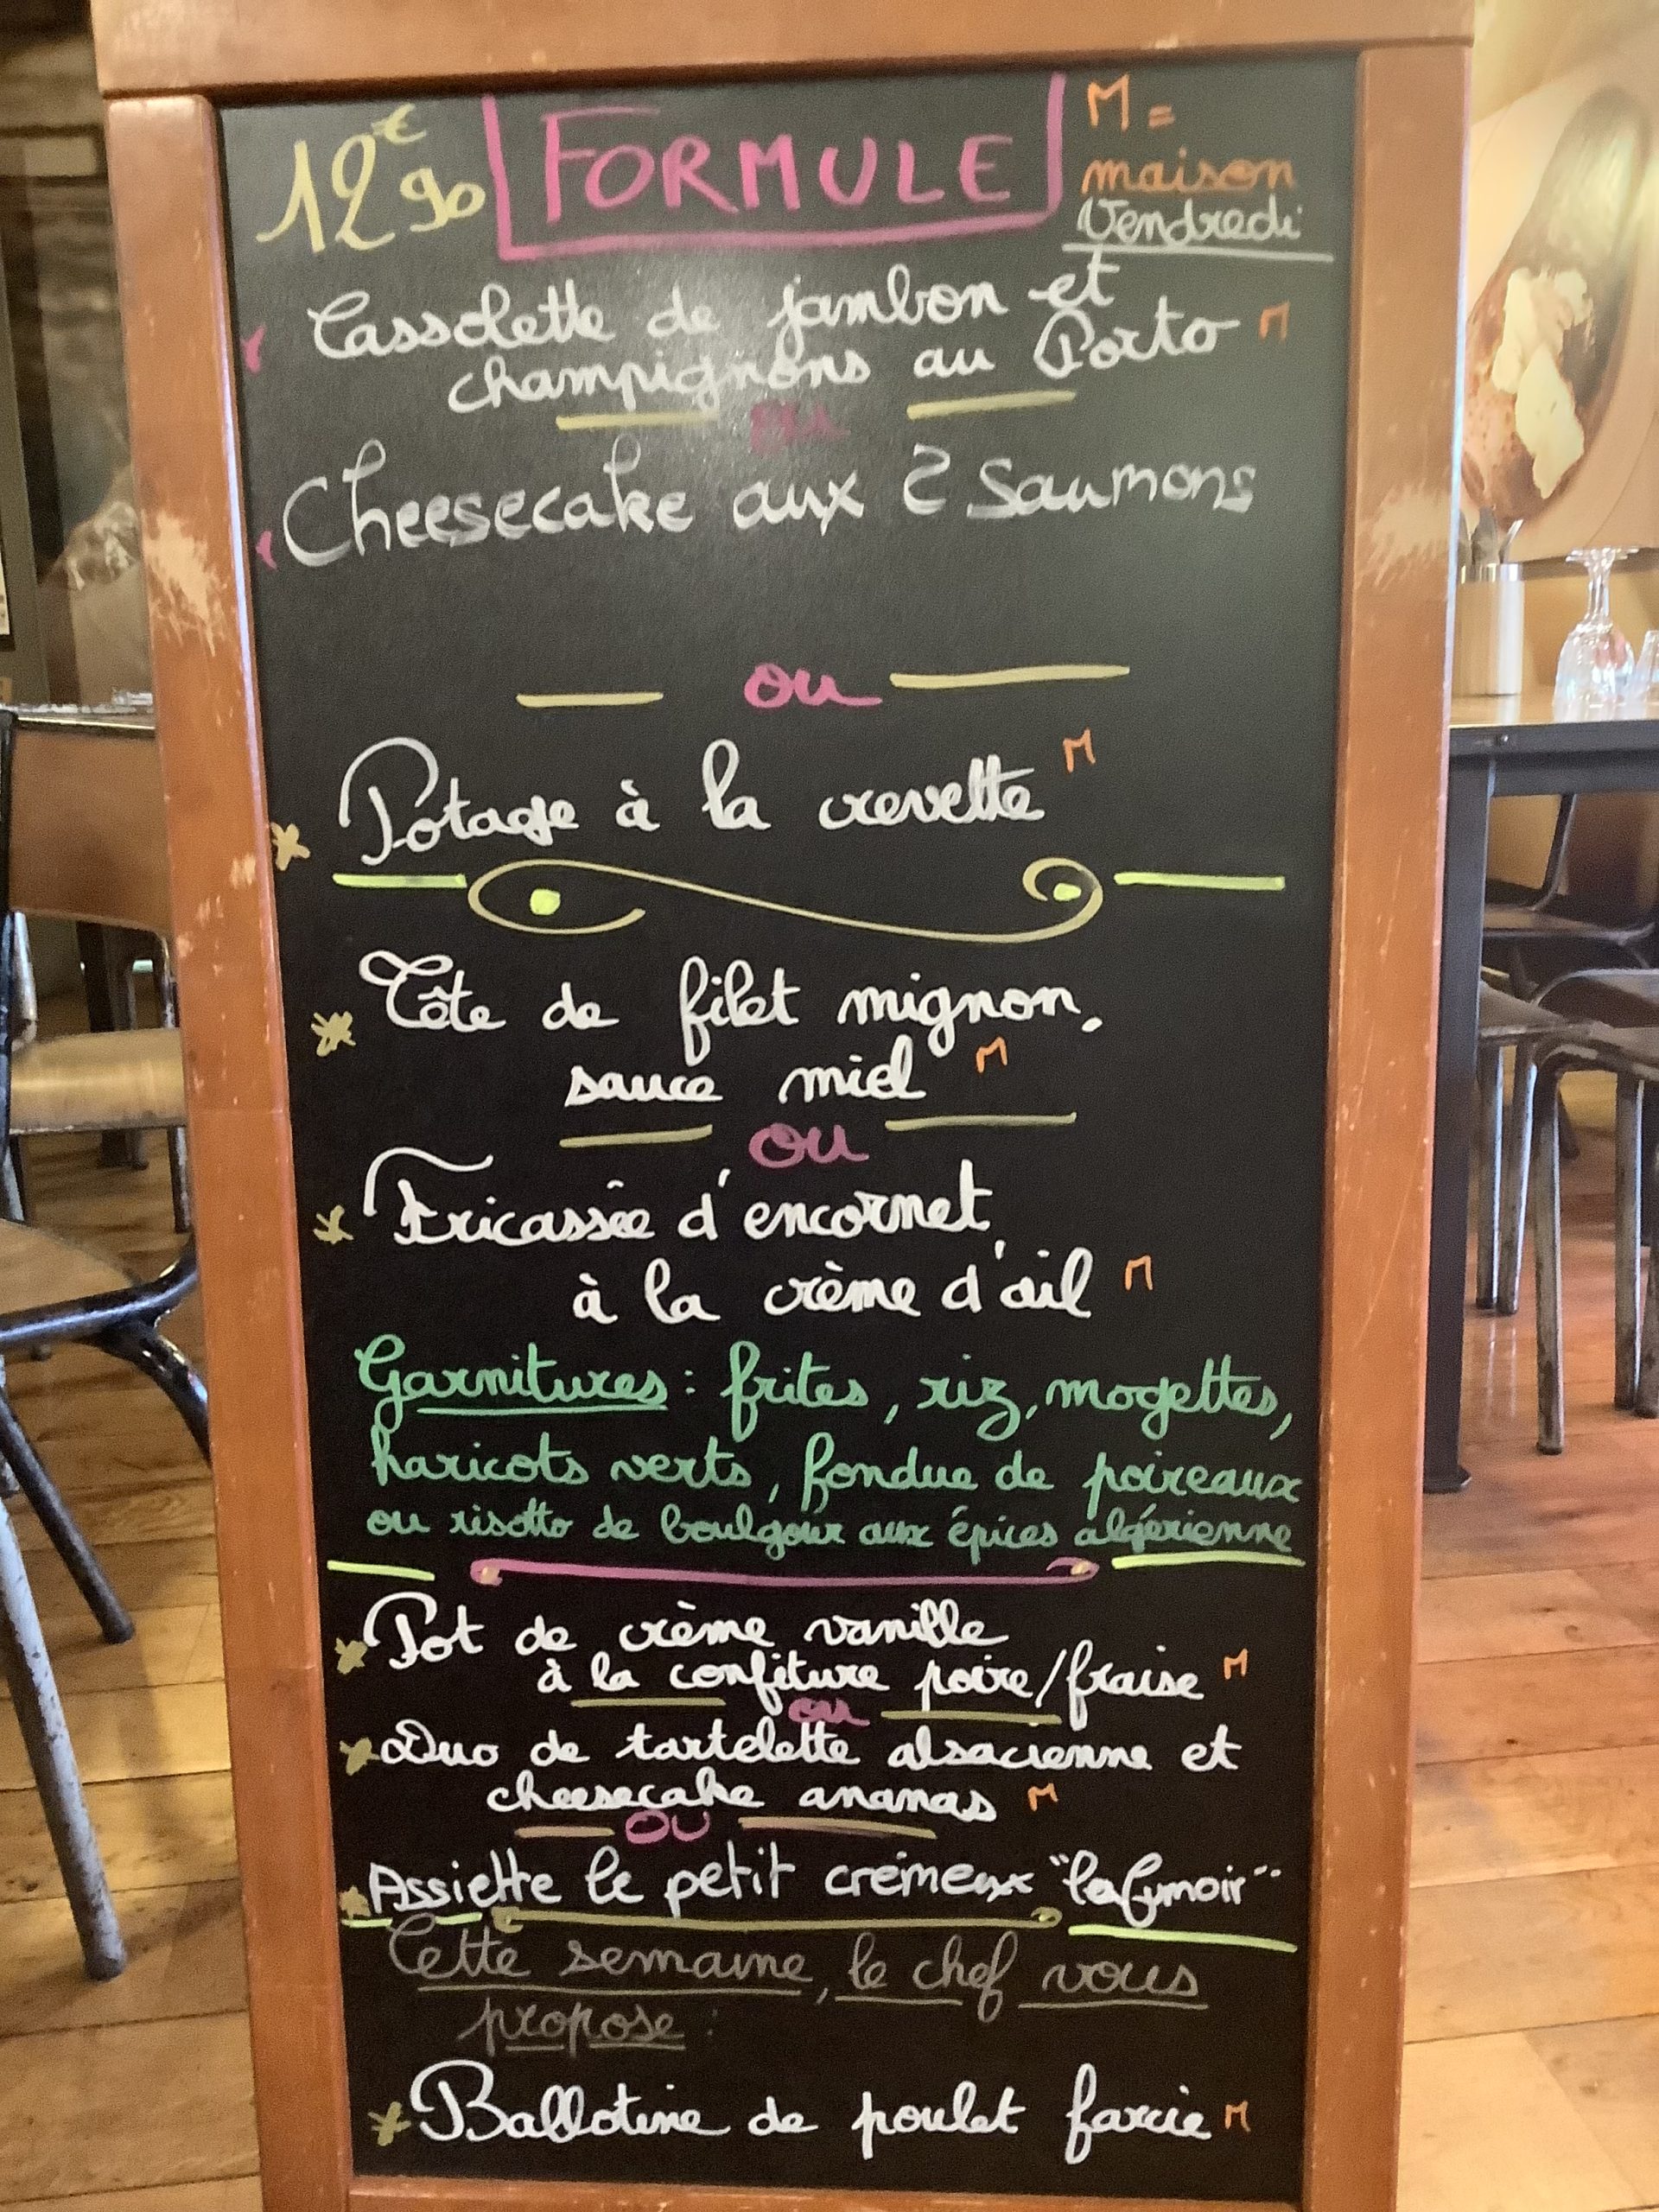 12€90 FORMULE M =
maison
Vendredi
Cassolette de jambon et
champignons au Porto M
ou
Cheesecake aux 2 Saumons
ou
Potage à la crevette M
Côte de filet mignon,
sauce miel M
ou
Fricassée d'encornet
à la crème d'ail M
Garnitures : frites, riz, mogettes,
haricots verts, fondue de poireaux
ou risotto de boulgour aux épices algérienne
Pot de crème vanille
à la confiture poire/fraise M
ou
Duo de tartelette alsacienne et
cheesecake ananas M
OU
Assiette le petit crémeux "le fumoir"
Cette semaine, le chef vous
propose :
Ballotine de poulet farcie M